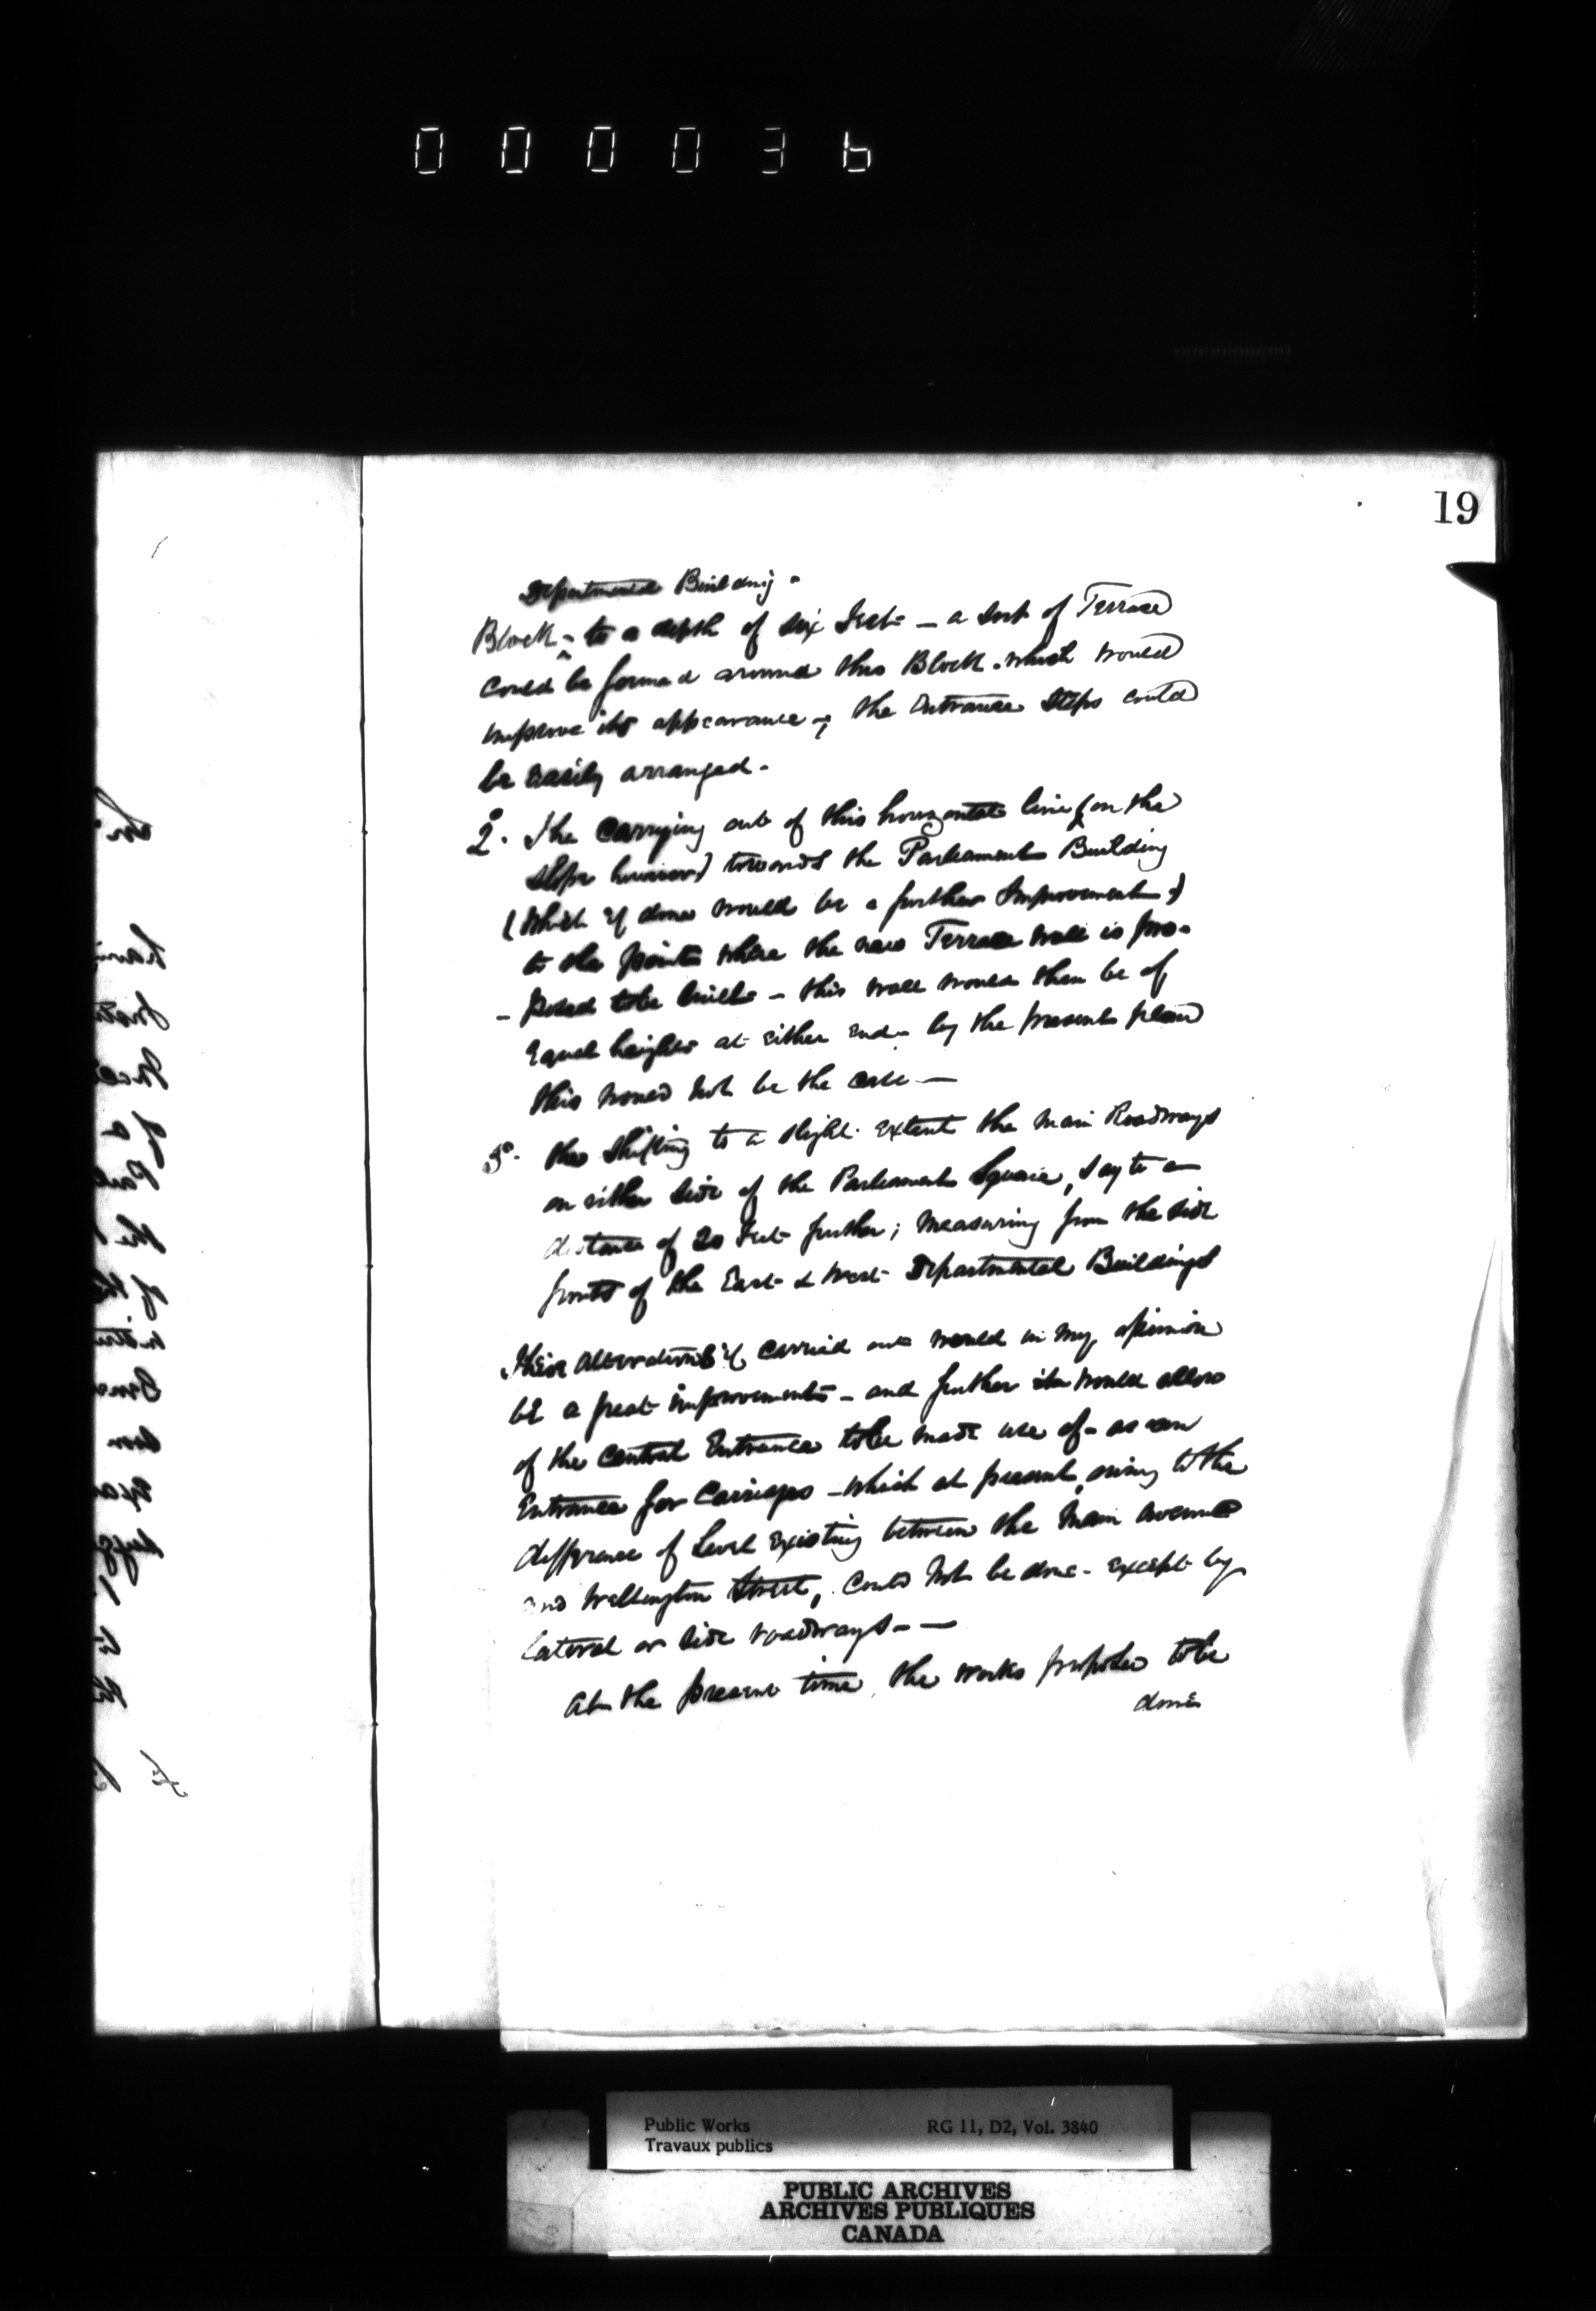 000036
19
Departmental Building -
Block - to a depth of six feet - a sort of Terrace
could be formed around this Block - which would
improve its appearance -; the Entrance Steps could
be Easily arranged -
2°. The Carrying out of this horizontal line (on the
slope however) towards the Parliament Building
(which if done would be a further Improvement)
to the point where the new Terrace wall is pro-
- posed to be built - this wall would then be of
Equal height at Either End - by the present plan
this would not be the case —
3°. the Shifting to a slight Extent the Main Roadways
on either side of the Parliament Square, say to a
distance of 20 Feet further; measuring from the side
fronts of the East & West Departmental Buildings
These alterations if carried out would in my opinion
be a great improvement - and further it would allow
of the Central Entrance to be made use of - as an
Entrance for Carriages - which at present, owing to the
difference of Level Existing between the Main avenue
and Wellington Street, could not be done - Except by
lateral or side roadways - —
At the present time, the works proposed to be
done
Public Works RG 11, D2, Vol. 3840
Travaux publics
PUBLIC ARCHIVES
ARCHIVES PUBLIQUES
CANADA